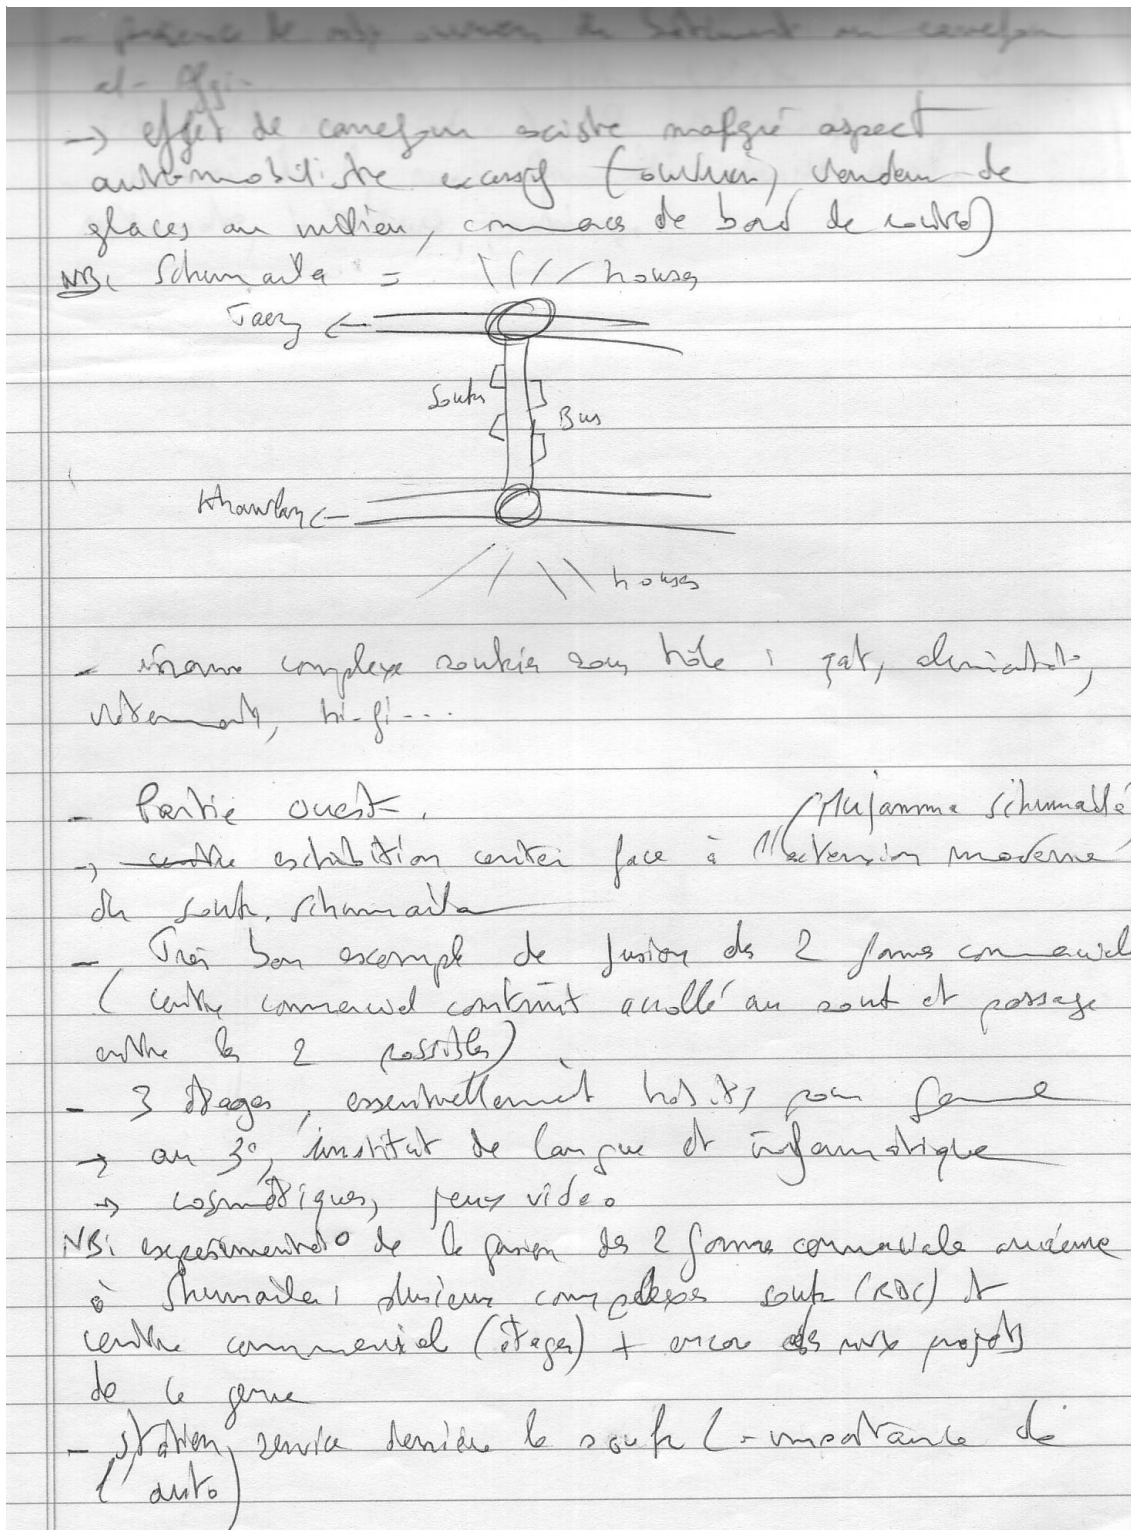 - présence de nbx ouvriers du bâtiment au carrefour
al-
→ effet de carrefour existe malgré aspect
automobiliste excessif (ouvriers, vendeur de
glaces au milieu, commerces de bord de route)
NB: Schumaila = houses
Taez ←
Souks
Bus
Khawlan ←
houses
- énorme complexe soukier sous tôle : qat, alimentat°,
vêtements, hi-fi...
- Partie ouest.
Mujamma Schumaila
→ exhibition center face à l'extension moderne
du souk Schumaila
- Très bon exemple de fusion des 2 formes commerciales
(centre commercial construit accollé au souk et passage
entre les 2 possible)
- 3 étages, essentiellement habits pour femme
→ au 3°, institut de langue et informatique
→ cosmétiques, jeux video
NB: experimentat° de la fusion des 2 formes commerciale ancienne
à Shumaila: plusieurs complexes souk (RDC) et
centre commercial (étages) + encore des nvx projets
de ce genre
- station service derrière le souk (-importance de
l'auto)